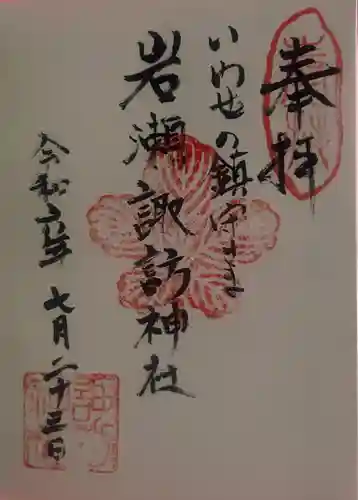 奉拝
いわせの鎮守さま
岩瀬諏訪神社
令和六年 七月二十三日